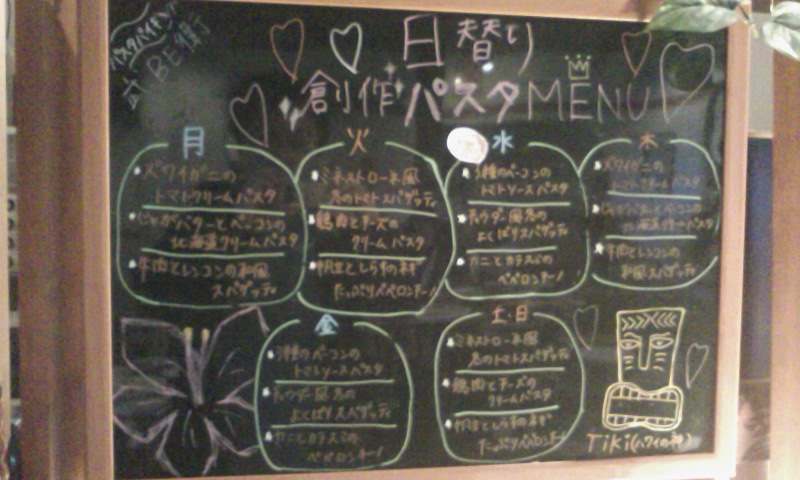 日替り
創作パスタMENU
月
・ズワイガニの
トマトクリームパスタ
・じゃがバターとベーコンの
北海道クリームパスタ
・牛肉とレンコンの和風
スパゲッティ
火
・ミネストローネ風
冬のトマトスパゲッティ
・鶏肉とチーズの
クリームパスタ
・帆立としらすのネギ
たっぷりペペロンチーノ
水
・3種のベーコンの
トマトソースパスタ
・チャウダー風冬の
よくばりスパゲッティ
・カニとカラスミの
ペペロンチーノ
木
・ズワイガニの
トマトクリームパスタ
・じゃがバターとベーコンの
北海道クリームパスタ
・牛肉とレンコンの
和風スパゲッティ
金
・3種のベーコンの
トマトソースパスタ
・チャウダー風冬の
よくばりスパゲッティ
・カニとカラスミの
ペペロンチーノ
土・日
・ミネストローネ風
冬のトマトスパゲッティ
・鶏肉とチーズの
クリームパスタ
・帆立としらすのネギ
たっぷりペペロンチーノ
Tiki(ハワイの神)